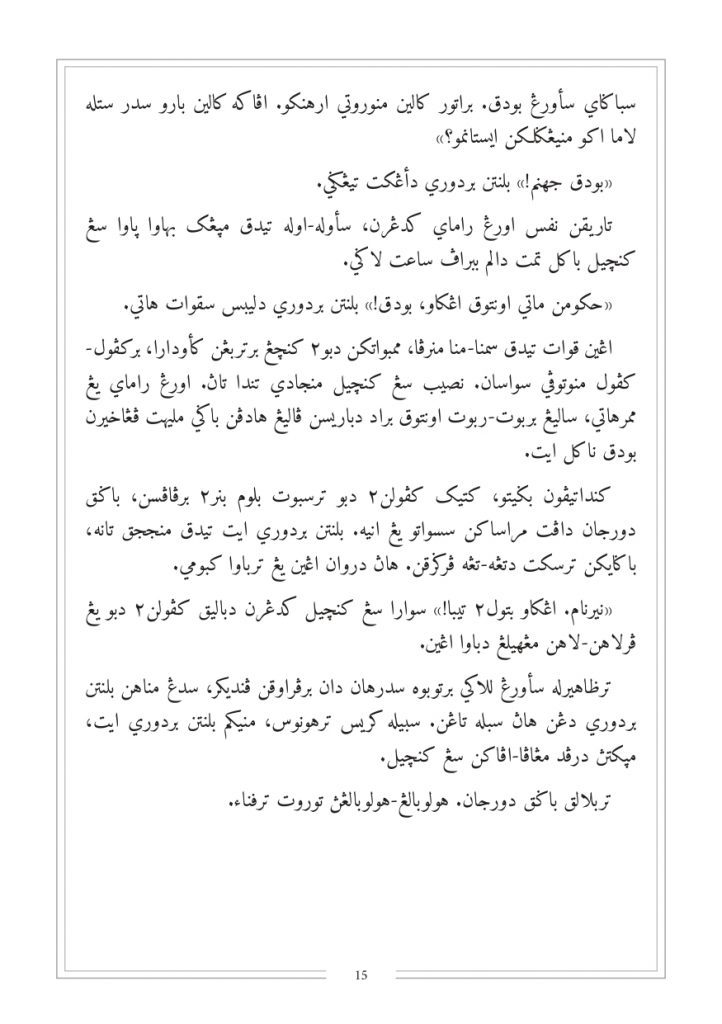 سباݢاي سأورڠ بودق. براتور ݢالين منوروتي ارهنكو. اڤاكه ݢالين بارو سدر ستله
لاما اكو منيڠݢلكن ايستانمو؟»
«بودق جهنم!» بلنتن بردوري دأڠكت تيڠݢي.
تاريقن نفس اورڠ راماي كدڠرن، سأوله-اوله تيدق مڽڠک بهاوا ڽاوا سڠ
كنچيل باكل تمت دالم ببراڤ ساعت لاݢي.
«حكومن ماتي اونتوق اڠكاو، بودق!» بلنتن بردوري دليبس سقوات هاتي.
اڠين قوات تيدق سمنا-منا منرڤا، ممبواتكن دبو٢ كنچڠ برتربڠن كأودارا، بركڤول-
كڤول منوتوڤي سواسان. نصيب سڠ كنچيل منجادي تندا تاڽ. اورڠ راماي يڠ
ممرهاتي، ساليڠ بربوت-ربوت اونتوق براد دباريسن ڤاليڠ هادڤن باݢي مليهت ڤڠاخيرن
بودق ناكل ايت.
كنداتيڤون بݢيتو، كتيک كڤولن٢ دبو ترسبوت بلوم بنر٢ برڤاڤسن، باڬق
دورجان داڤت مراساكن سسواتو يڠ انيه. بلنتن بردوري ايت تيدق منججق تانه،
باݢايكن ترسكت دتڠه-تڠه ڤركڬرقن. هاڽ دروان اڠين يڠ ترباوا كبومي.
«نيرنام. اڠكاو بتول٢ تيبا!» سوارا سڠ كنچيل كدڠرن دباليق كڤولن٢ دبو يڠ
ڤرلاهن-لاهن مڠهيلڠ دباوا اڠين.
ترظاهيرله سأورڠ للاكي برتوبوه سدرهان دان برڤراوقن ڤنديكر، سدڠ مناهن بلنتن
بردوري دڠن هاڽ سبله تاڠن. سبيله كريس ترهونوس، منيكم بلنتن بردوري ايت،
مڽكتڽ درڤد مڠاڤا-اڤاكن سڠ كنچيل.
تربلالق باڬق دورجان. هولوبالڠ-هولوبالڠڽ توروت ترڤناء.
15